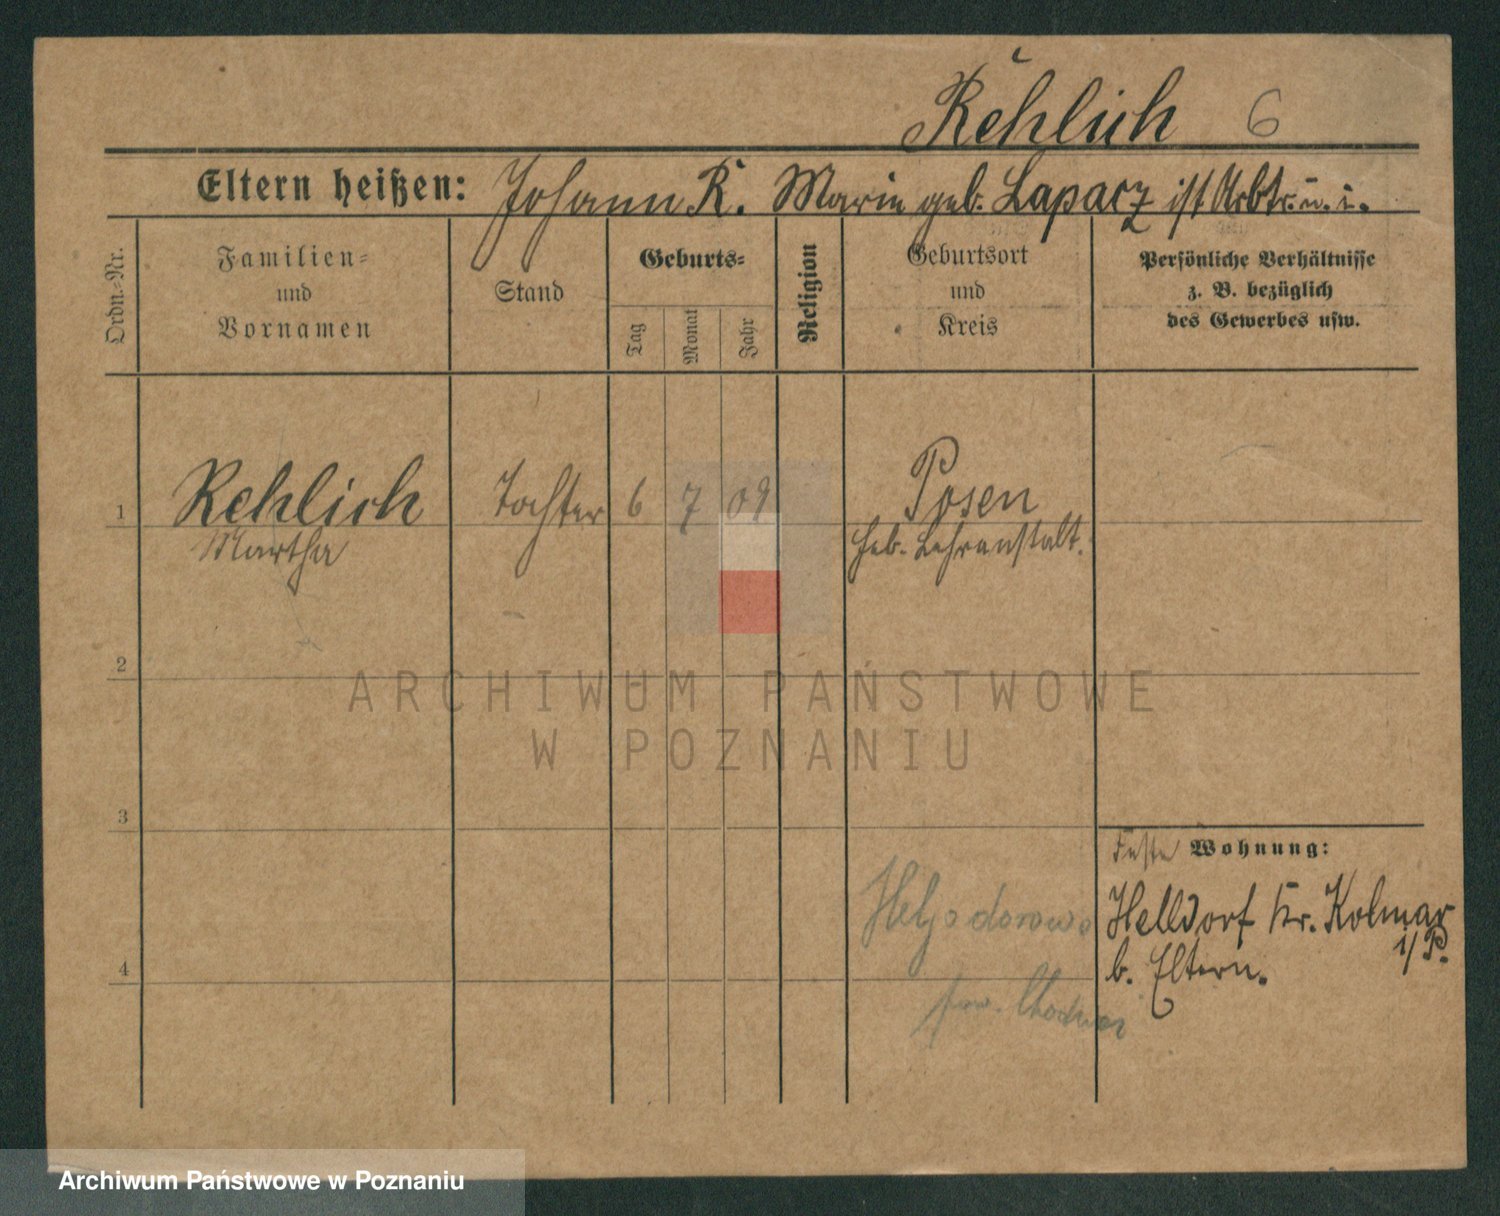 Rehlich 6
Eltern heißen: Johann R. Marie geb. Laparz ist Arbtr. u. i.
Ordn.-Nr.
Familien-
und
Vornamen
Stand
Geburts-
Tag
Monat
Jahr
Religion
Geburtsort
und
Kreis
Persönliche Verhältnisse
z. B. bezüglich
des Gewerbes usw.
1 Rehlich Tochter 6 7 09 Posen
Martha Heb. Lehranstalt.
2
ARCHIWUM PAŃSTWOWE
W POZNANIU
3
Feste Wohnung:
Heljodorowo
Helldorf Kr. Kolmar
i/P.
4
b. Eltern.
pow. Chodzież
Archiwum Państwowe w Poznaniu